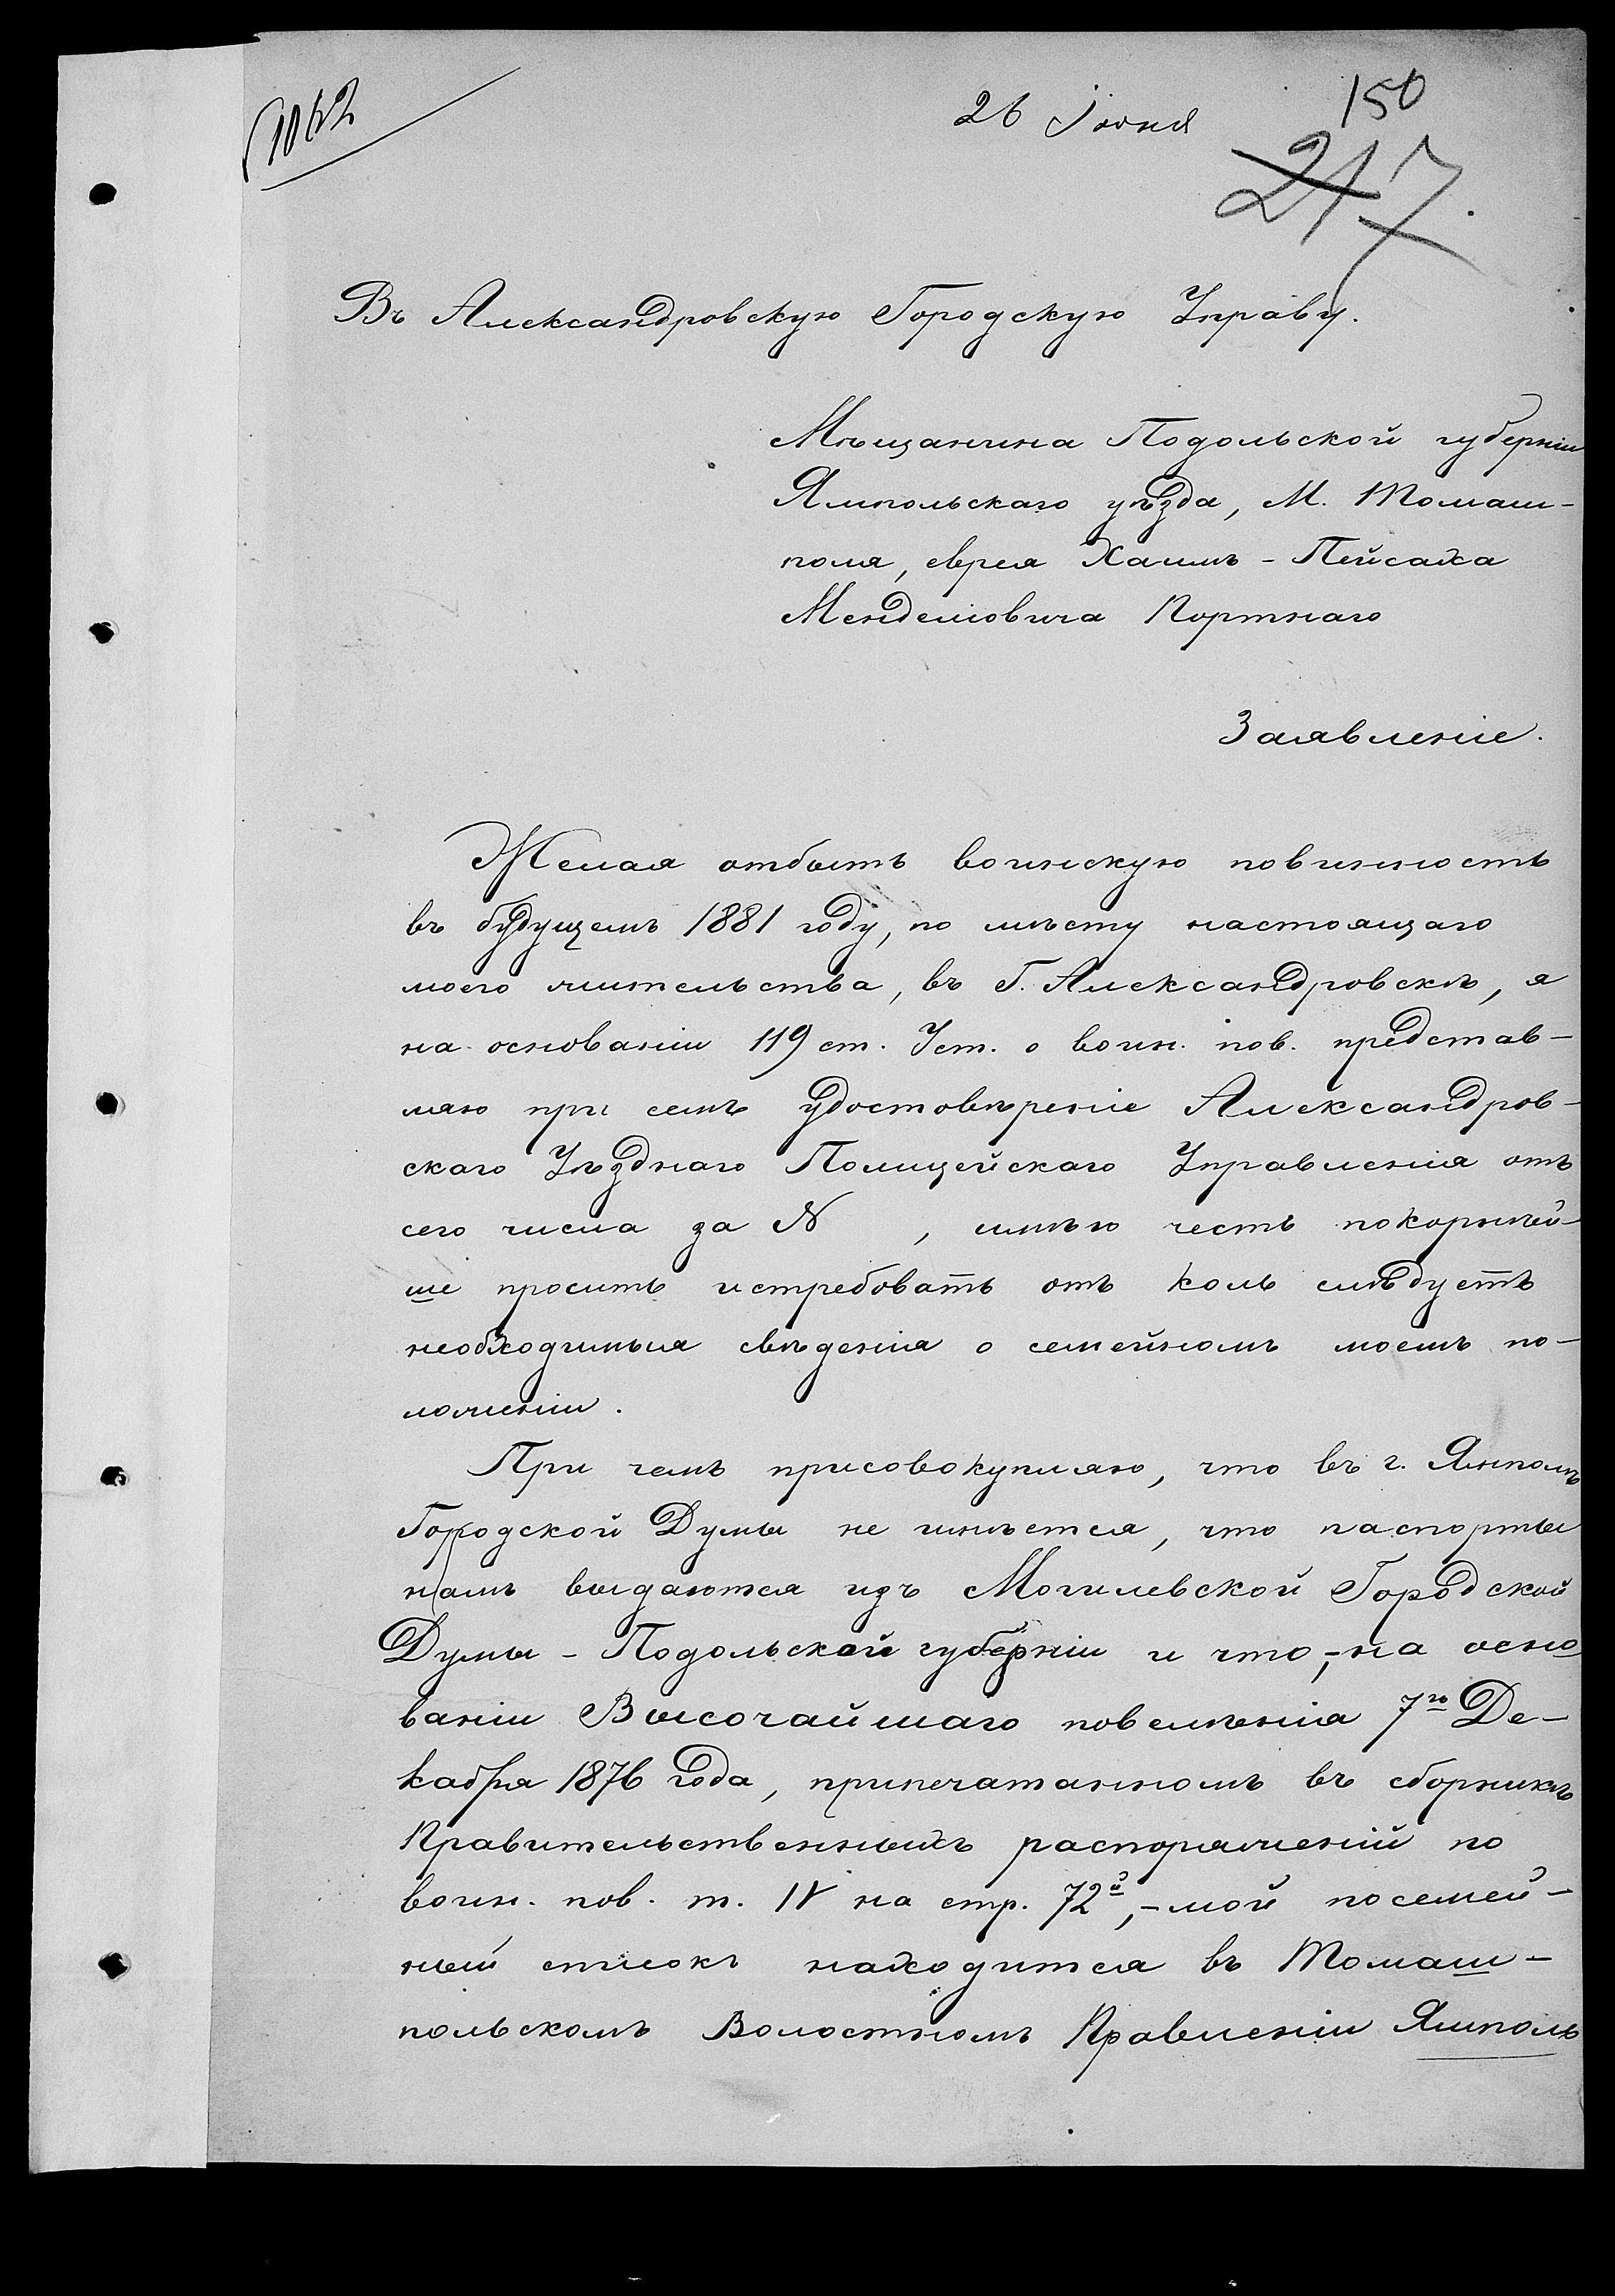 1042
26 Іюня
150
217.
Въ Александровскую Городскую Управу.
Мѣщанина Подольской губерніи
Ямпольскаго уѣзда, М. Томаш-
поля, еврея Хаимъ-Пейсаха
Менделіовича Портнаго
Заявленіе.
Желая отбыть воинскую повинность
въ будущемъ 1881 году, по мѣсту настоящаго
моего жительства, въ Г. Александровскѣ, я
на основаніи 119 ст. Уст. о воин. пов. представ-
ляю при семъ удостовѣреніе Александров-
скаго Уѣзднаго Полицейскаго Управленія отъ
сего числа за N , имѣю честь покорнѣй-
ше просить истребовать отъ коль слѣдуетъ
необходимыя свѣденія о семейномъ моемъ по-
ложеніи.
При чемъ присовокупляю, что въ г. Ямполѣ
Городской Думы не имѣется, что паспорты
намъ выдаются изъ Могилевской Городской
Думы - Подольской губерніи и что,-на осно
ваніи Высочайшаго повелѣнія 7го Де-
кабря 1876 года, припечатанномъ въ сборникѣ
Правительственныхъ распоряженій по
воин. пов. т. IV на стр. 72й,-мой посемей-
ный списокъ находится въ Томаш-
польскомъ Волостномъ Правленіи Ямполь